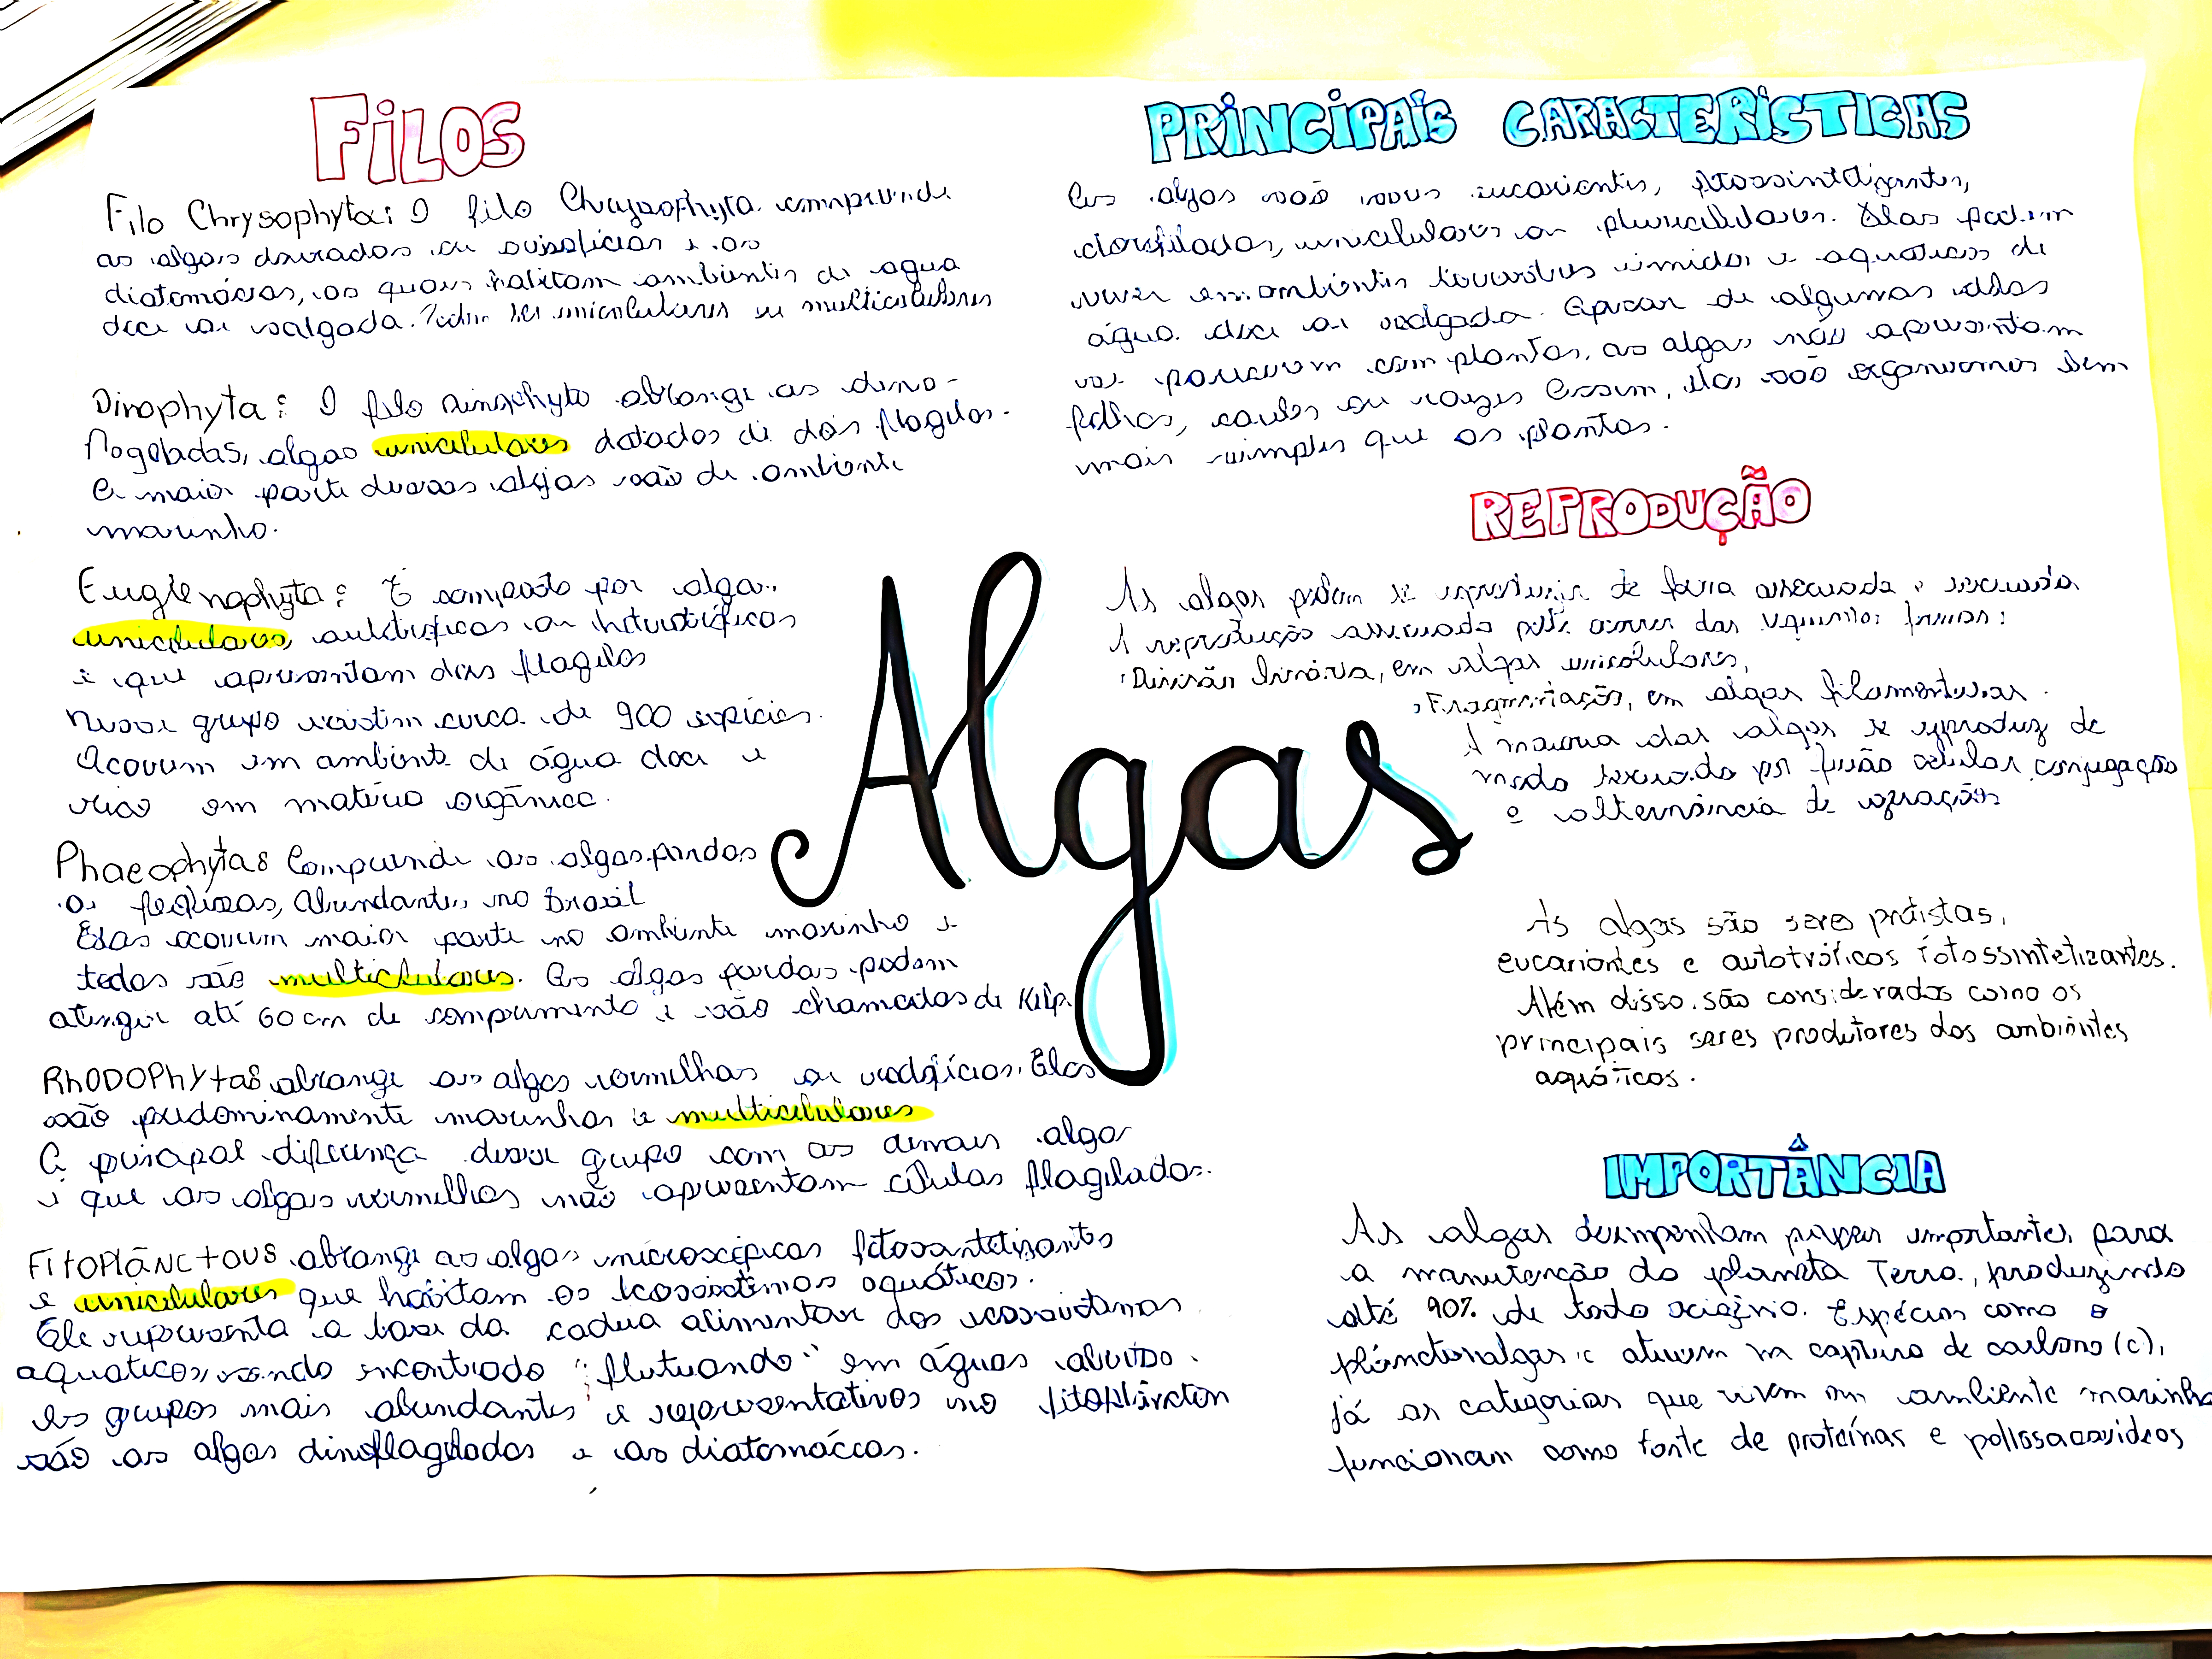 FILOS
Filo Chrysophyta: O filo Chrysophyta compreende
as algas douradas ou crisofíceas e as
diatomáceas, as quais habitam ambientes de agua
doce ou salgada. Podem ser unicelulares ou multicelulares
Dinophyta: O filo Dinophyta abrange as dino-
flageladas, algas unicelulares dotadas de dois flagelos.
A maior parte dessas algas são de ambiente
marinho.
Euglenophyta: É composto por algas
unicelulares, autotróficas ou heterotróficas
e que apresentam dois flagelos
Nesse grupo existem cerca de 900 espécies.
Ocorrem em ambiente de água doce e
rico em matéria orgânica.
Phaeophyta: Compreende as algas pardas
ou feofíceas, abundantes no Brasil
Elas ocorrem maior parte no ambiente marinho e
todas são multicelulares. As algas pardas podem
atingir até 60 cm de comprimento e são chamadas de Kelp.
RhODOPhyta: abrange as algas vermelhas ou rodofíceas. Elas
são predominamente marinhas e multicelulares
A principal diferença desse grupo com as demais algas
é que as algas vermelhas não apresentam células flageladas.
FITOPlânctous abrange as algas microscópicas fotossintetizantes
e unicelulares que habitam os ecossistemas aquáticos.
Ele representa a base da cadeia alimentar dos ecossistemas
aquaticos, sendo encontrado "flutuando" em águas abertas.
Os grupos mais abundantes e representativos no fitoplâncton
são as algas dinoflageladas e as diatomáceas.
Algas
PRINCIPAIS CARACTERÍSTICAS
As algas são seres eucariontes, fotossintetizantes,
clorofiladas, unicelulares ou pluricelulares. Elas podem
viver em ambientes terrestres úmidos e aquaticos de
água doce ou salgada. Apesar de algumas delas
se parecerem com plantas, as algas não apresentam
folhas, caules ou raízes Assim, elas são organismos bem
mais simples que as plantas.
REPRODUÇÃO
As algas podem se reproduzir de forma assexuada e sexuada
A reprodução assexuada pode ocorrer das seguintes formas:
Divisão binária, em algas unicelulares,
Fragmentação, em algas filamentosas.
A maioria das algas se reproduz de
modo sexuado por fusão celular, conjugação
e alternância de gerações
As algas são seres protistas,
eucariontes e autotróficos fotossintetizantes.
Além disso, são considerados como os
principais seres produtores dos ambientes
aquáticos.
IMPORTÂNCIA
As algas desempenham papeis importantes para
a manutenção do planeta Terra, produzindo
até 90% de todo oxigênio. Espécies como o
atuam na captura de carbono (c),
já as categorias que vivem em ambiente marinho
funcionam como fonte de proteínas e polissacarídeos